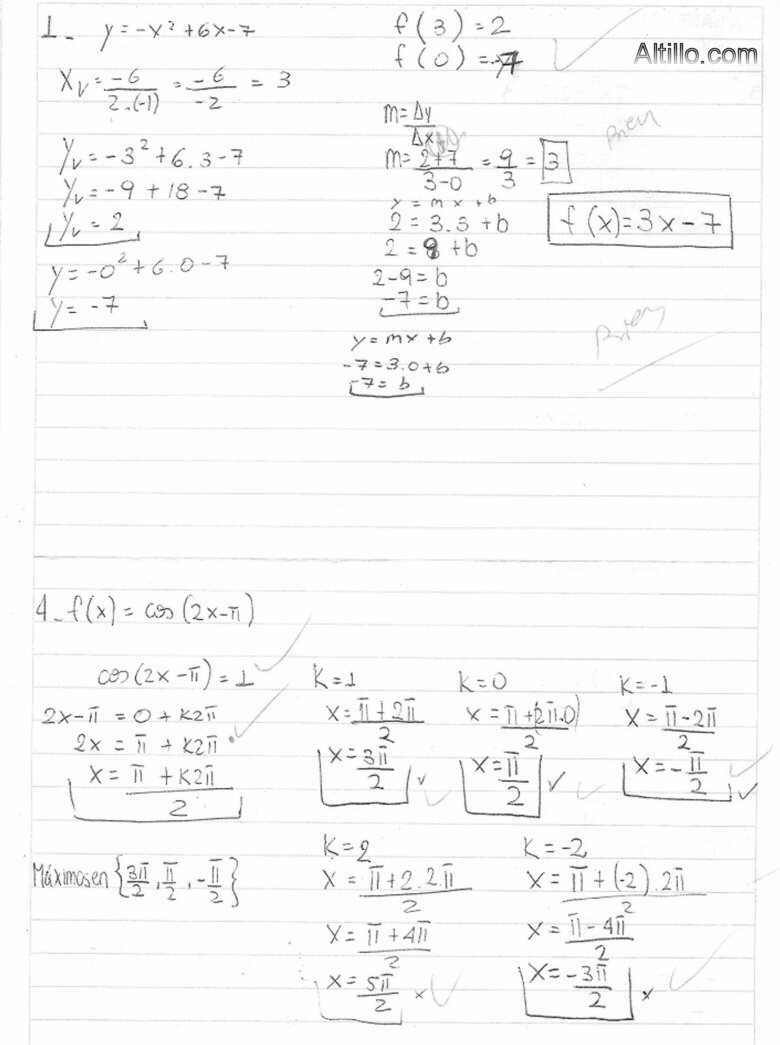 1- y=-x²+6x-7
Xv=-6/2.(-1)=-6/-2=3
Yv=-3²+6.3-7
Yv=-9+18-7
Yv=2
y=-0²+6.0-7
y=-7
f(3)=2
f(0)=-7
Altillo.com
m=Δy/Δx
m=2+7/3-0=9/3=3
y=mx+b
2=3.3+b
2=9+b
2-9=b
-7=b
y=mx+b
-7=3.0+b
-7=b
Bien
f(x)=3x-7
Bien
4- f(x)=cos(2x-π)
cos(2x-π)=1
2x-π=0+k2π
2x=π+k2π
x=π+k2π/2
K=1
x=π+2π/2
x=3π/2
K=0
x=π+(2π.0)/2
x=π/2
K=-1
x=π-2π/2
x=-π/2
Máximos en {3π/2, π/2, -π/2}
K=2
x=π+2.2π/2
x=π+4π/2
x=5π/2 x
K=-2
x=π+(-2).2π/2
x=π-4π/2
x=-3π/2 x